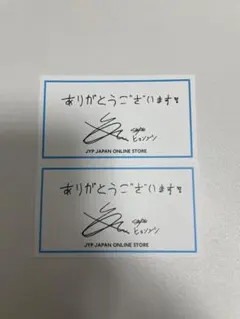 ありがとうございます
ヒョンジン
JYP JAPAN ONLINE STORE
ありがとうございます
ヒョンジン
JYP JAPAN ONLINE STORE